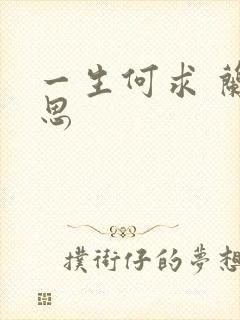 一生何求 蘭
思
撲街仔的夢想